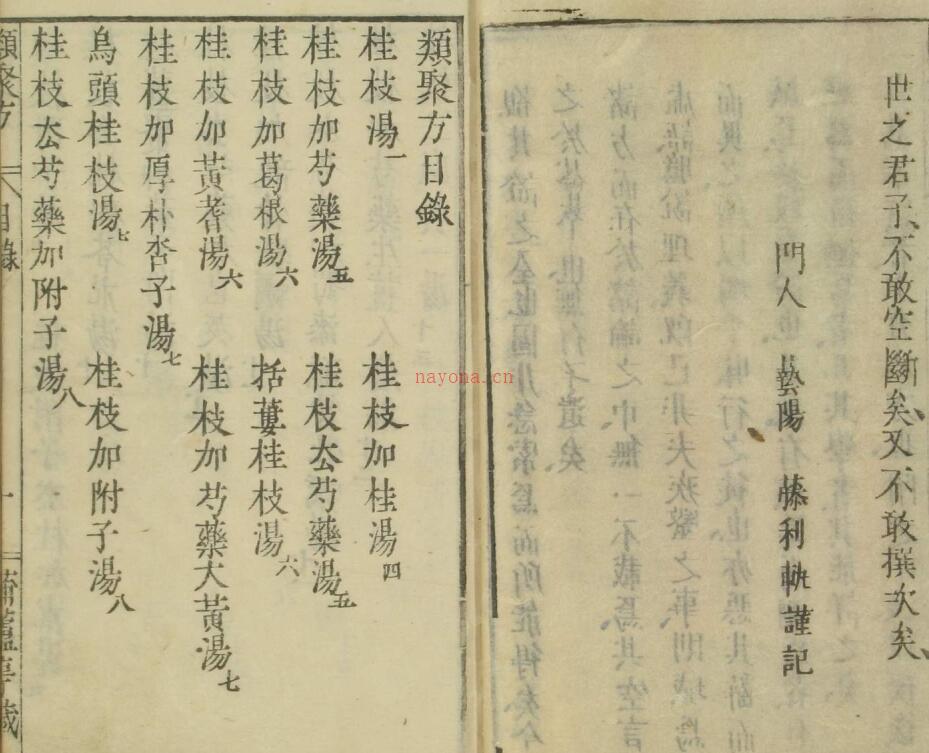 世之君子、不敢空斷矣又不敢撰次矣、
門人 藝陽 藤利軌謹記
類聚方目錄
桂枝湯一 桂枝加桂湯四
桂枝加芍藥湯五 桂枝去芍藥湯五
桂枝加葛根湯六 括蔞桂枝湯六
桂枝加黃耆湯六 桂枝加芍藥大黃湯七
桂枝加厚朴杏子湯七
烏頭桂枝湯七 桂枝加附子湯八
桂枝去芍藥加附子湯八
類聚方 目錄 一
nayona.cn